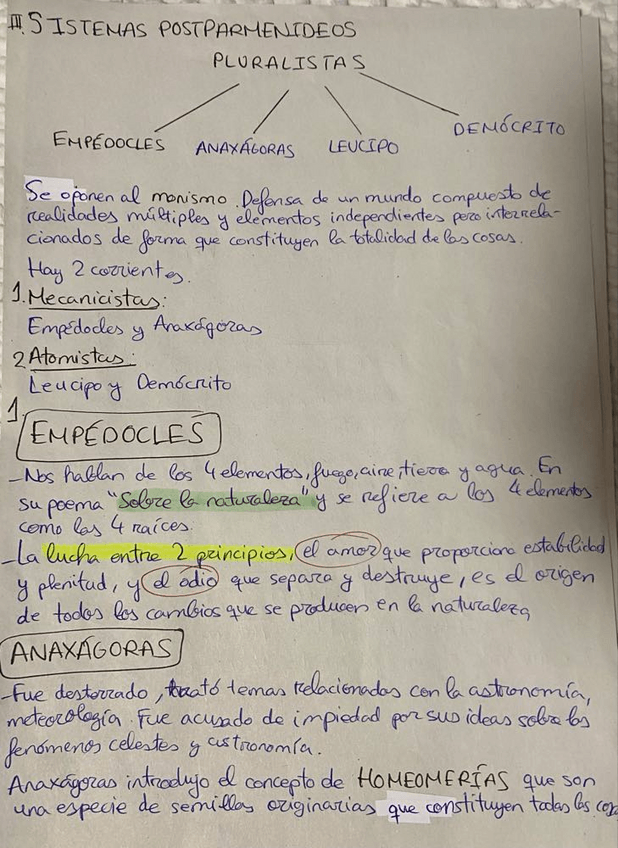 III. SISTEMAS POSTPARMENIDEOS
PLURALISTAS
EMPÉDOCLES ANAXÁGORAS LEUCIPO DEMÓCRITO
Se oponen al monismo. Defensa de un mundo compuesto de
realidades múltiples y elementos independientes pero interrela-
cionados de forma que constituyen la totalidad de las cosas.
Hay 2 corrientes.
1. Mecanicistas:
Empédocles y Anaxágoras
2 Atomistas:
Leucipo y Demócrito
1
EMPÉDOCLES
- Nos hablan de los 4 elementos, fuego, aire, tierra y agua. En
su poema "Sobre la naturaleza" y se refiere a los 4 elementos
como las 4 raíces.
- La lucha entre 2 principios, el amor que proporciona estabilidad
y plenitud, y el odio que separa y destruye, es el origen
de todos los cambios que se producen en la naturaleza
ANAXÁGORAS
- Fue desterrado, trató temas relacionados con la astronomía,
meteorología. Fue acusado de impiedad por sus ideas sobre los
fenómenos celestes y astronomía.
Anaxágoras introdujo el concepto de HOMEOMERÍAS que son
una especie de semillas originarias que constituyen todas las cos